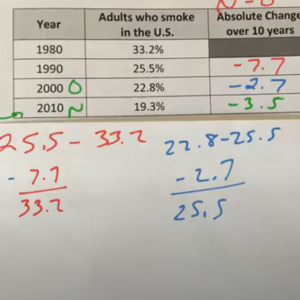 N - O
Year Adults who smoke in the U.S. Absolute Change over 10 years
1980 33.2%
1990 25.5% -7.7
2000 O 22.8% -2.7
2010 N 19.3% -3.5
25.5 - 33.2 22.8-25.5
- 7.7 - 2.7
33.2 25.5